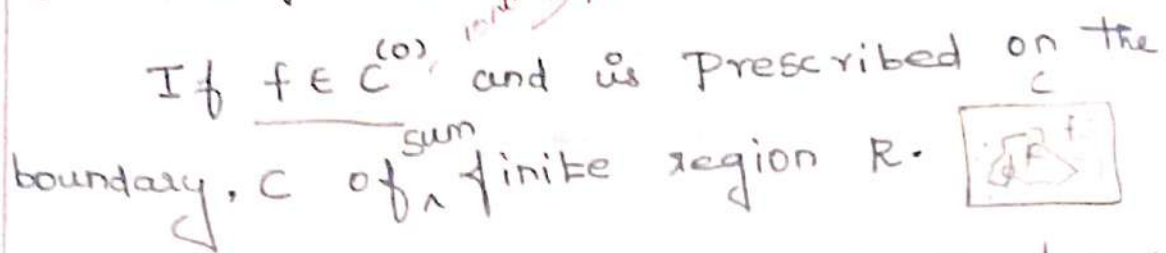 If f ∈ C^(0), and is prescribed on the
boundary, C of sum finite region R.
C
f